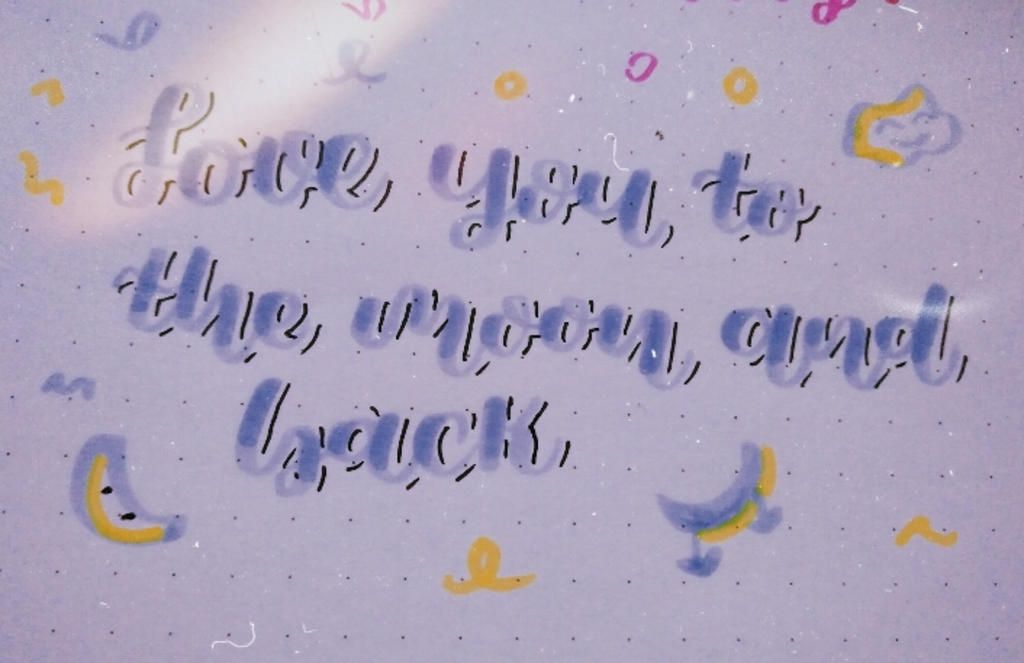 Love you to
the moon and
back